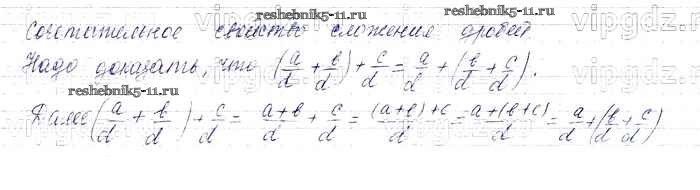 reshebnik5-11.ru
reshebnik5-11.ru
vipgdz.ru
Сочетательное свойство сложения дробей
Надо доказать, что (a/d + b/d) + c/d = a/d + (b/d + c/d).
reshebnik5-11.ru
Далее (a/d + b/d) + c/d = a+b/d + c/d = (a+b)+c/d = a+(b+c)/d = a/d + (b/d + c/d)
reshebnik5-11.ru